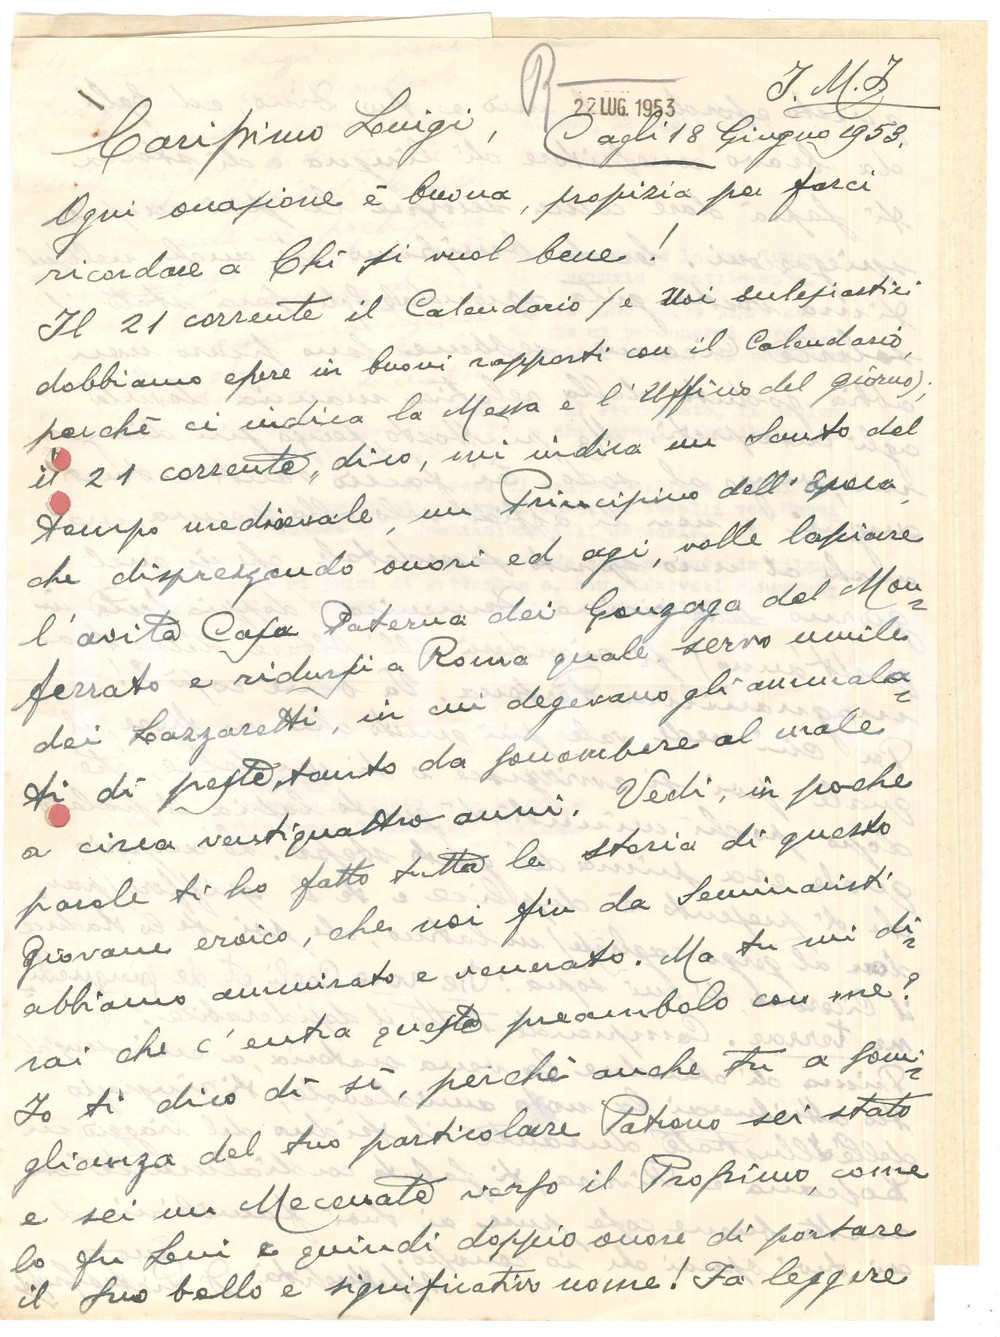 J. M. J
R
22 LUG. 1953
Carissimo Luigi, Cagli 18 Giugno 1953.
Ogni occasione è buona, propizia per farci
ricordare a Chi si vuol bene!
Il 21 corrente il Calendario (e noi eclesiastici
dobbiamo essere in buoni rapporti con il Calendario,
perchè ci indica la Messa e l'Uffino del giorno);
il 21 corrente, dico, mi indica un Santo del
tempo medioevale, un Principino dell'Epoca,
che disprezzando onori ed agi, volle lasciare
l'avita Casa Paterna dei Gonzaga del Mon=
ferrato e ridursi a Roma quale servo umile
dei Lazzaretti, in cui degevano gli ammala=
ti di peste, tanto da soccombere al male
a circa ventiquattro anni. Vedi, in poche
parole ti ho fatto tutta la storia di questo
Giovane eroico, che noi fin da Seminaristi
abbiamo ammirato e venerato. Ma tu mi di=
rai che c'entra questo preambolo con me?
Io ti dico di sì, perchè anche tu a somi=
glianza del tuo particolare Patrono sei stato
e sei un Mecenate verso il Prossimo, come
lo fu Lui e quindi doppio onore di portare
il Suo bello e significativo nome! Fa leggere